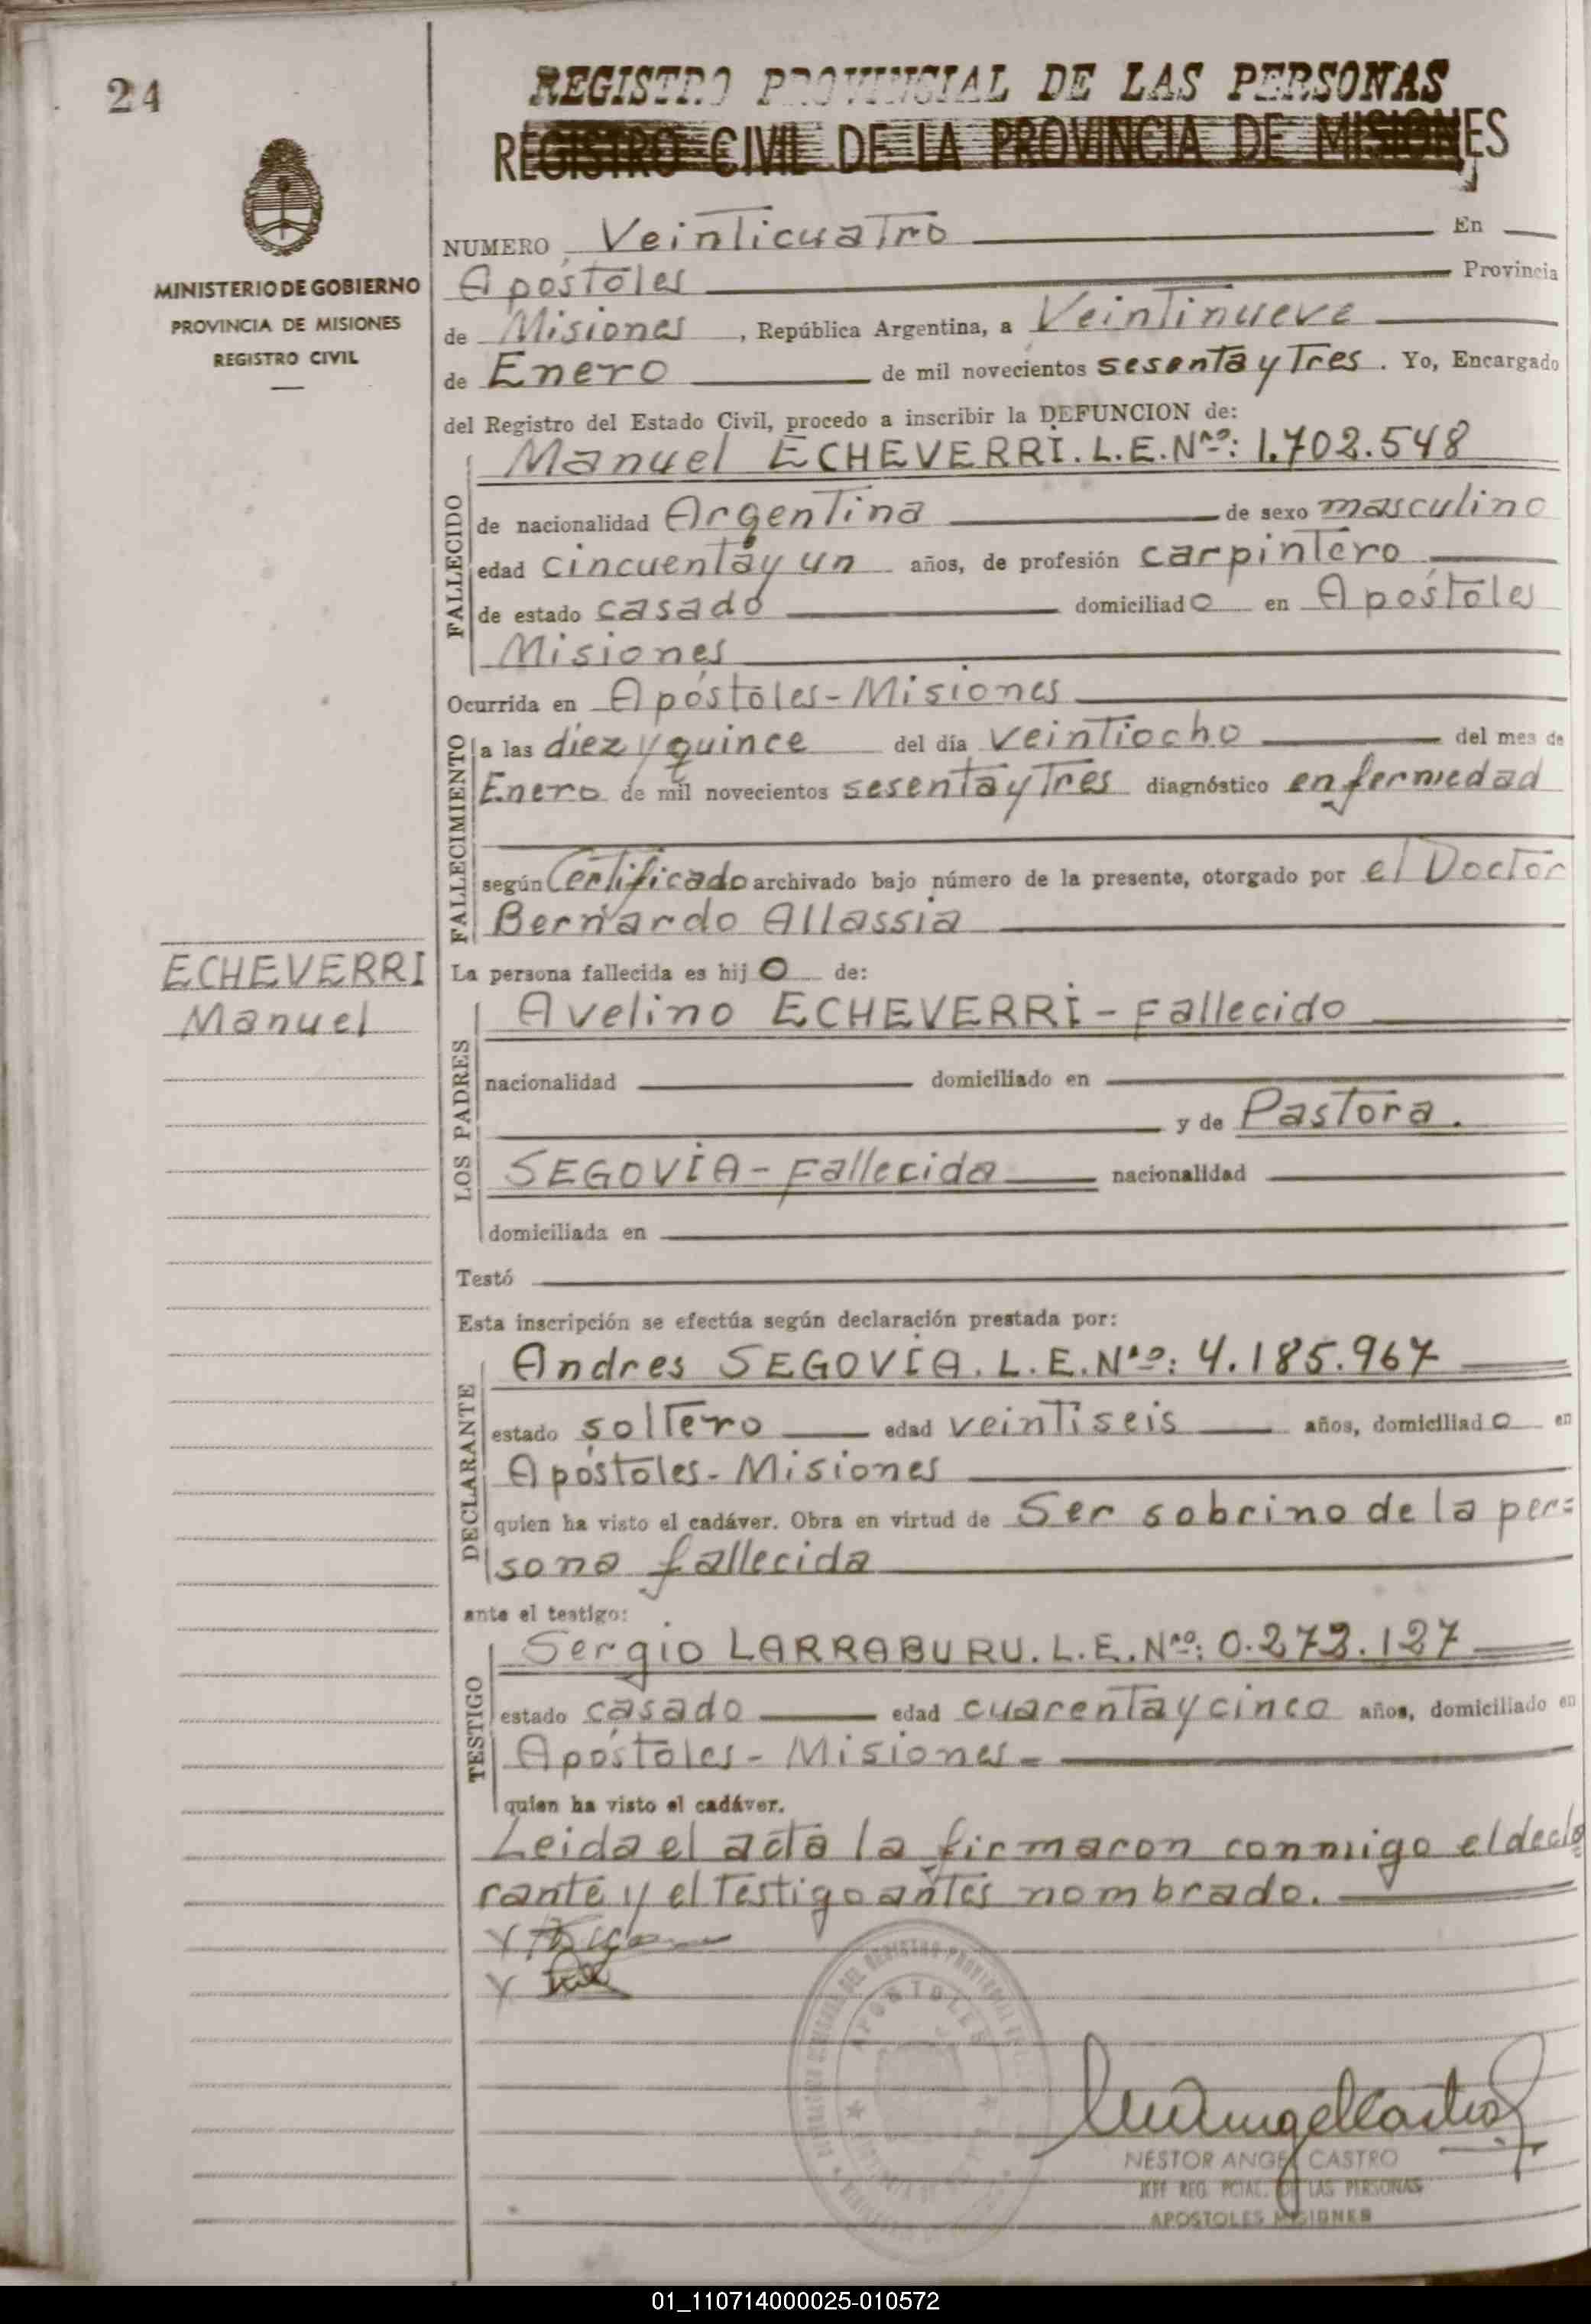 24
REGISTRO PROVINCIAL DE LAS PERSONAS
REGISTRO CIVIL DE LA PROVINCIA DE MISIONES
MINISTERIO DE GOBIERNO
PROVINCIA DE MISIONES
REGISTRO CIVIL
NUMERO Veinticuatro En
Apóstoles Provincia
de Misiones, República Argentina, a Veintinueve
de Enero de mil novecientos sesenta y Tres. Yo, Encargado
del Registro del Estado Civil, procedo a inscribir la DEFUNCION de:
FALLECIDO
Manuel ECHEVERRI. L.E. Nro: 1.702.548
de nacionalidad Argentina de sexo masculino
edad cincuenta y un años, de profesión carpintero
de estado casado domiciliado en Apóstoles
Misiones
Ocurrida en Apóstoles-Misiones
FALLECIMIENTO
a las diez y quince del día veintiocho del mes de
Enero de mil novecientos sesenta y Tres diagnóstico enfermedad
según Certificado archivado bajo número de la presente, otorgado por el Doctor
Bernardo Allassia
ECHEVERRI
Manuel
La persona fallecida es hijo de:
LOS PADRES
Avelino ECHEVERRI - Fallecido
nacionalidad domiciliado en
y de Pastora.
SEGOVIA - Fallecida nacionalidad
domiciliada en
Testó
Esta inscripción se efectúa según declaración prestada por:
DECLARANTE
Andres SEGOVIA. L.E. Nro: 4.185.967
estado soltero edad veintiseis años, domiciliado en
Apóstoles-Misiones
quien ha visto el cadáver. Obra en virtud de Ser sobrino de la per=
sona fallecida
ante el testigo:
TESTIGO
Sergio LARRABURU. L.E. Nro: 0.273.127
estado casado edad cuarenta y cinco años, domiciliado en
Apóstoles - Misiones -
quien ha visto el cadáver.
Leida el acta la firmaron conmigo el decla
rante y el Testigo antes nombrado.
APOSTOLES
NESTOR ANGEL CASTRO
JEFE REG. PCIAL. DE LAS PERSONAS
APOSTOLES MISIONES
01_110714000025-010572